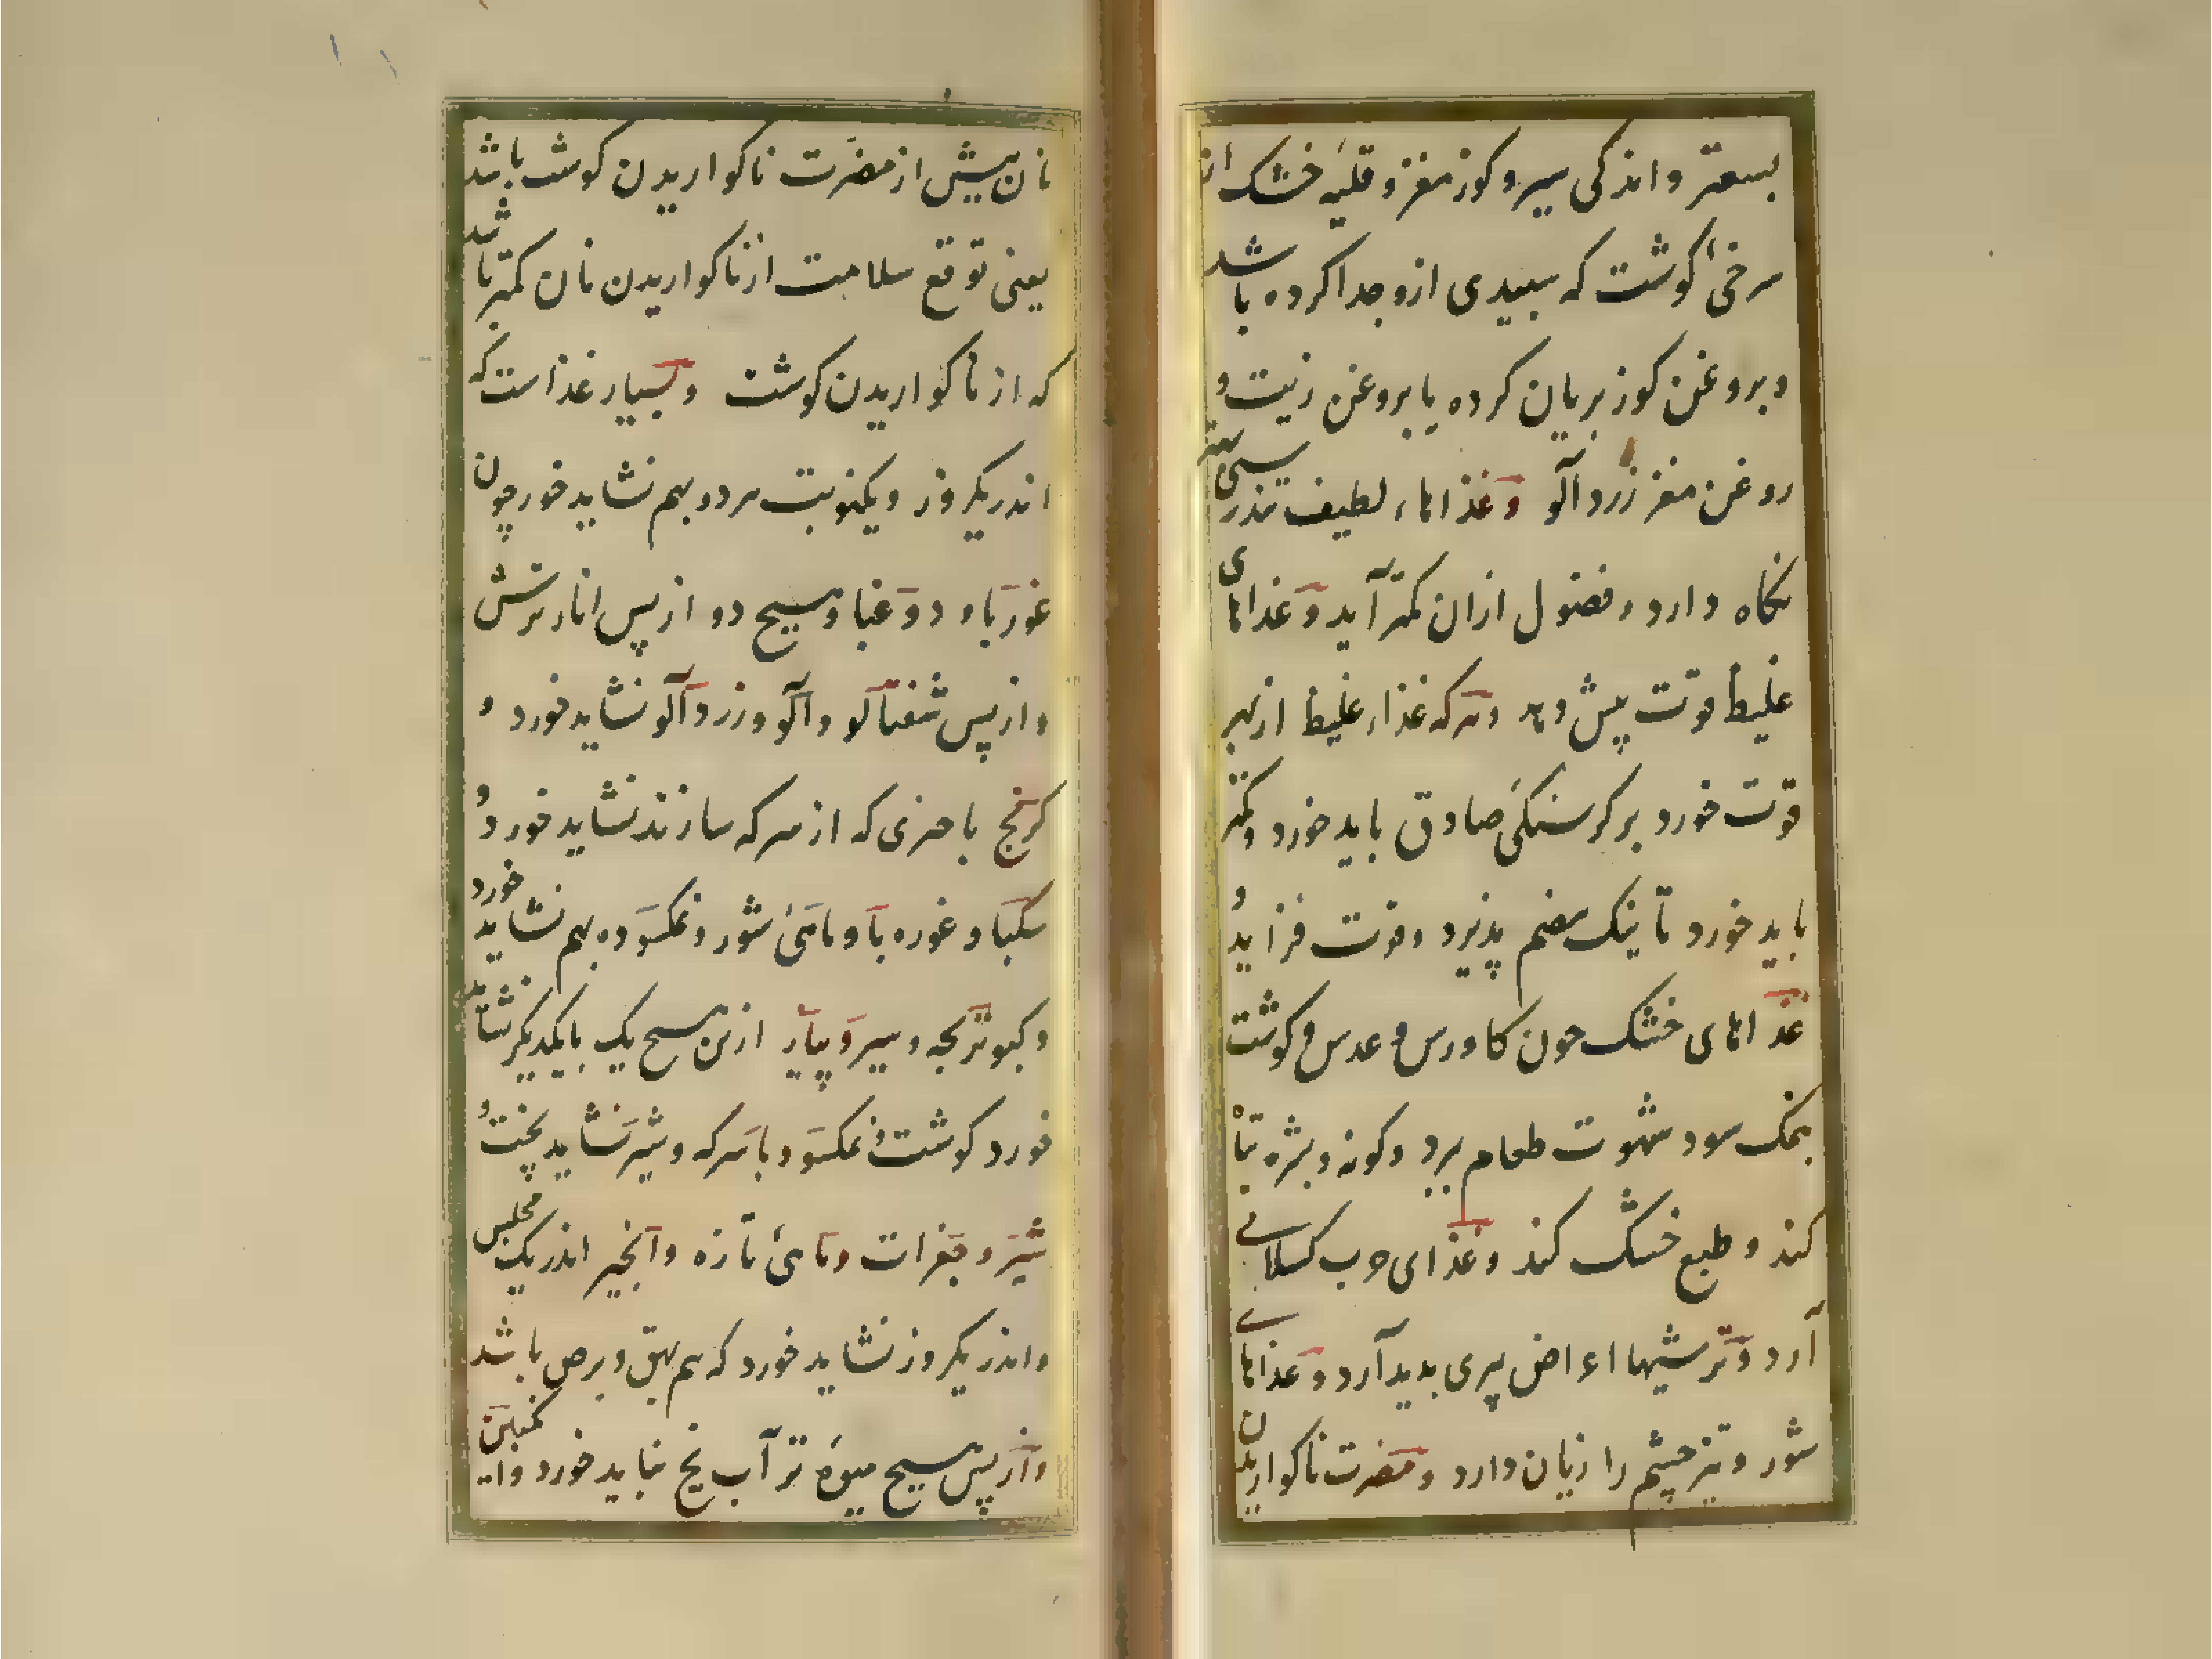 بسعتر و اندکی سیر و کوز مغز و قلیهٔ خشک از
سرخی کوشت که سبیدی ازو جدا کرده باشد
و بروغن کوز بریان کرده یا بروغن زیت و
روغن مغز زردآلو و غذاهاء لطیف تندرستی بهتر
نکاه دارد و فضول ازان کمتر آید و غذاهای
غلیظ قوّت بیش دهد و هرکه غذاء غلیظ از بهر
قوّت خورد بر کرسنکیٔ صادق باید خورد و کمتر
باید خورد تا نیک هضم پذیرد و قوت فزاید و
غذاهای خشک جون کاورس و عدس و کوشت
بنمک سود شهوت طعام ببرد و کونه و بشره تباه
کند و طبع خشک کند و غذای جرب کسلانی
آرد و ترشیها اعراض پیری بدید آرد و غذاهای
شور و تیز چشم را زیان دارد و مضرت ناکواریدن
نان بیش از مضرّت ناکواریدن کوشت باشد
یعنی توقع سلامت از ناکواریدن نان کمتر باشد
که از ناکواریدن کوشت و بسیار غذاست که
اندر یکروز و یکنوبت هر دو بهم نشاید خورد چون
غورباء و دوغبا و هیچ دو از پس انار ترش
و از پس شفتالو و آلو و زردآلو نشاید خورد و
کرنج با چیزی که از سرکه سازند نشاید خورد و
سکبا و غوره با و ماهیٔ شور و نمکسوده بهم نشاید خورد
و کبوتر بجه و سیر و پیاز ازین هیچ یک با یکدیکر نشاید
خورد کوشت نمکسود با سرکه و شیر نشاید پخت و
شیر و جغرات و ماهیٔ تازه و انجیر اندر یک مجلس
و اندر یکروز نشاید خورد که بیم بهق و برص باشد
و از پس هیچ میوهٔ تر آب یخ نباید خورد و انکبین